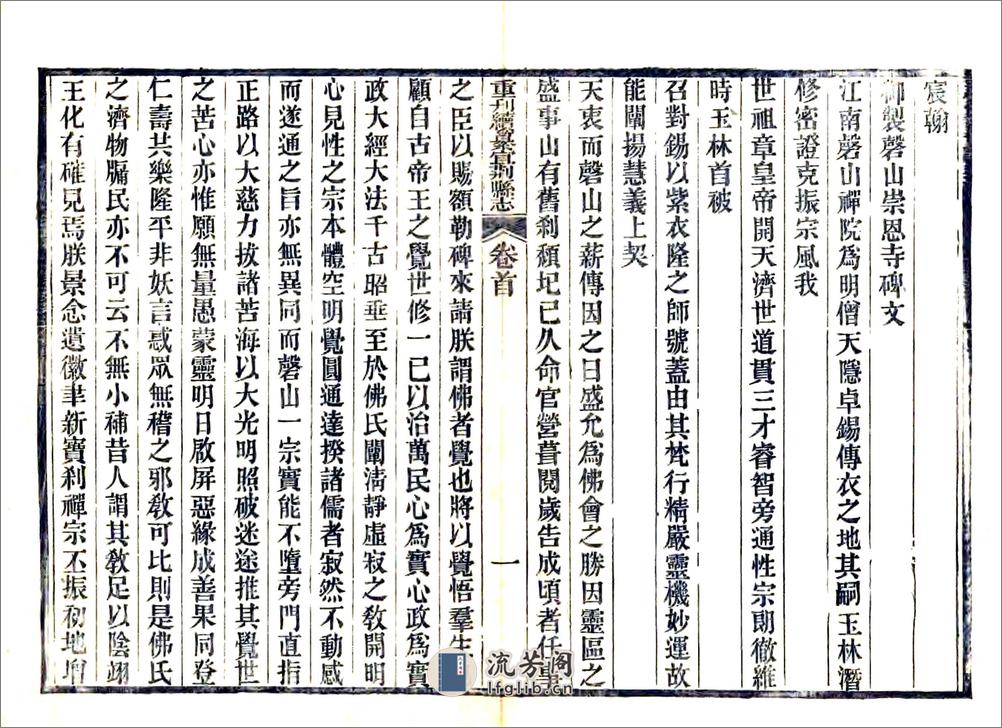 宸翰
御製磬山崇恩寺碑文
江南磬山禪院爲明僧天隱卓錫傳衣之地其嗣玉林潛
修密證克振宗風我
世祖章皇帝開天濟世道貫三才睿智旁通性宗朗徹維
時玉林首被
召對錫以紫衣隆之師號蓋由其梵行精嚴靈機妙運故
能闡揚慧義上契
天衷而磬山之薪傳因之日盛允爲佛會之勝因靈區之
盛事山有舊刹頹圮已久命官營葺閱歲告成頃者任事
重刋續纂宜荆縣志 卷首 一
之臣以賜額勒碑來請朕謂佛者覺也將以覺悟羣生
顧自古帝王之覺世修一已以治萬民心爲實心政爲實
政大經大法千古昭垂至於佛氏闡淸靜虛寂之敎開明
心見性之宗本體空明覺圓通達揆諸儒者寂然不動感
而遂通之旨亦無異同而磬山一宗實能不墮旁門直指
正路以大慈力拔諸苦海以大光明照破迷途推其覺世
之苦心亦惟願無量愚蒙靈明日啟屏惡緣成善果同登
仁壽共樂隆平非妖言惑眾無稽之邪敎可比則是佛氏
之濟物牖民亦不可云不無小補昔人謂其敎足以陰翊
王化有確見焉朕景念遺徽聿新寶刹禪宗丕振初地增
流芳阁
lfglib.cn